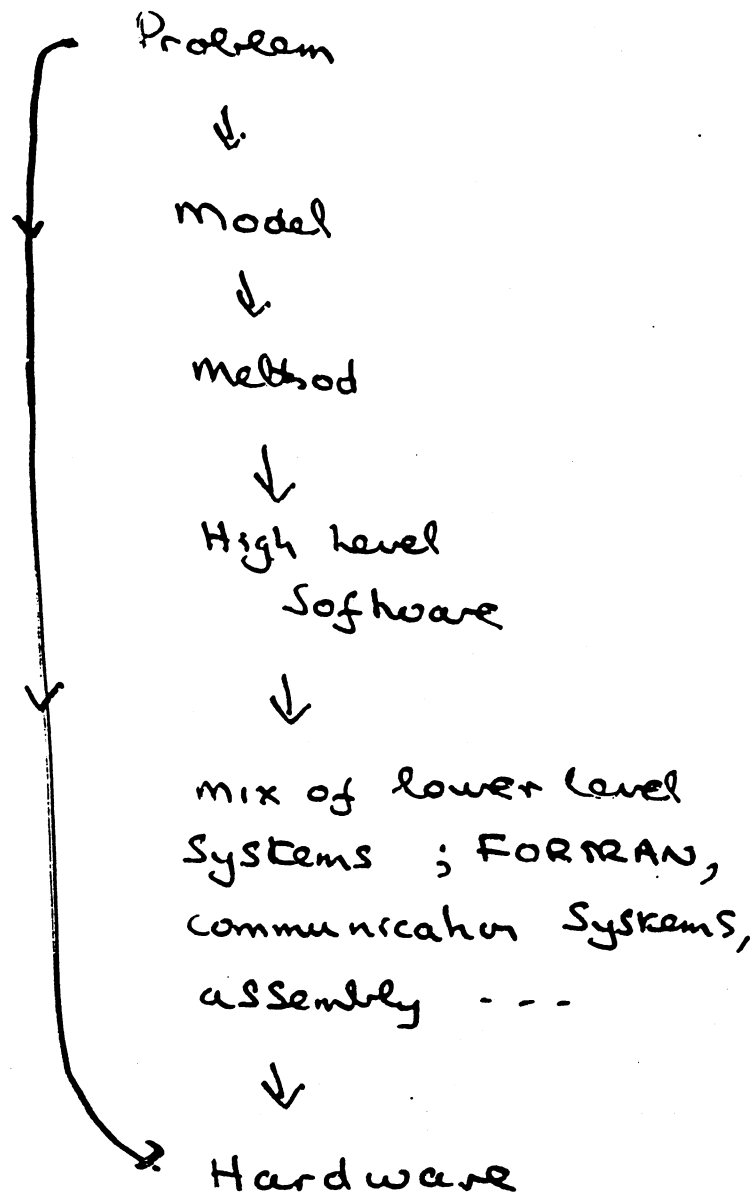 Problem
Model
Method
High Level
Software
mix of lower level
Systems ; FORTRAN,
communication Systems,
assembly ---
Hardware